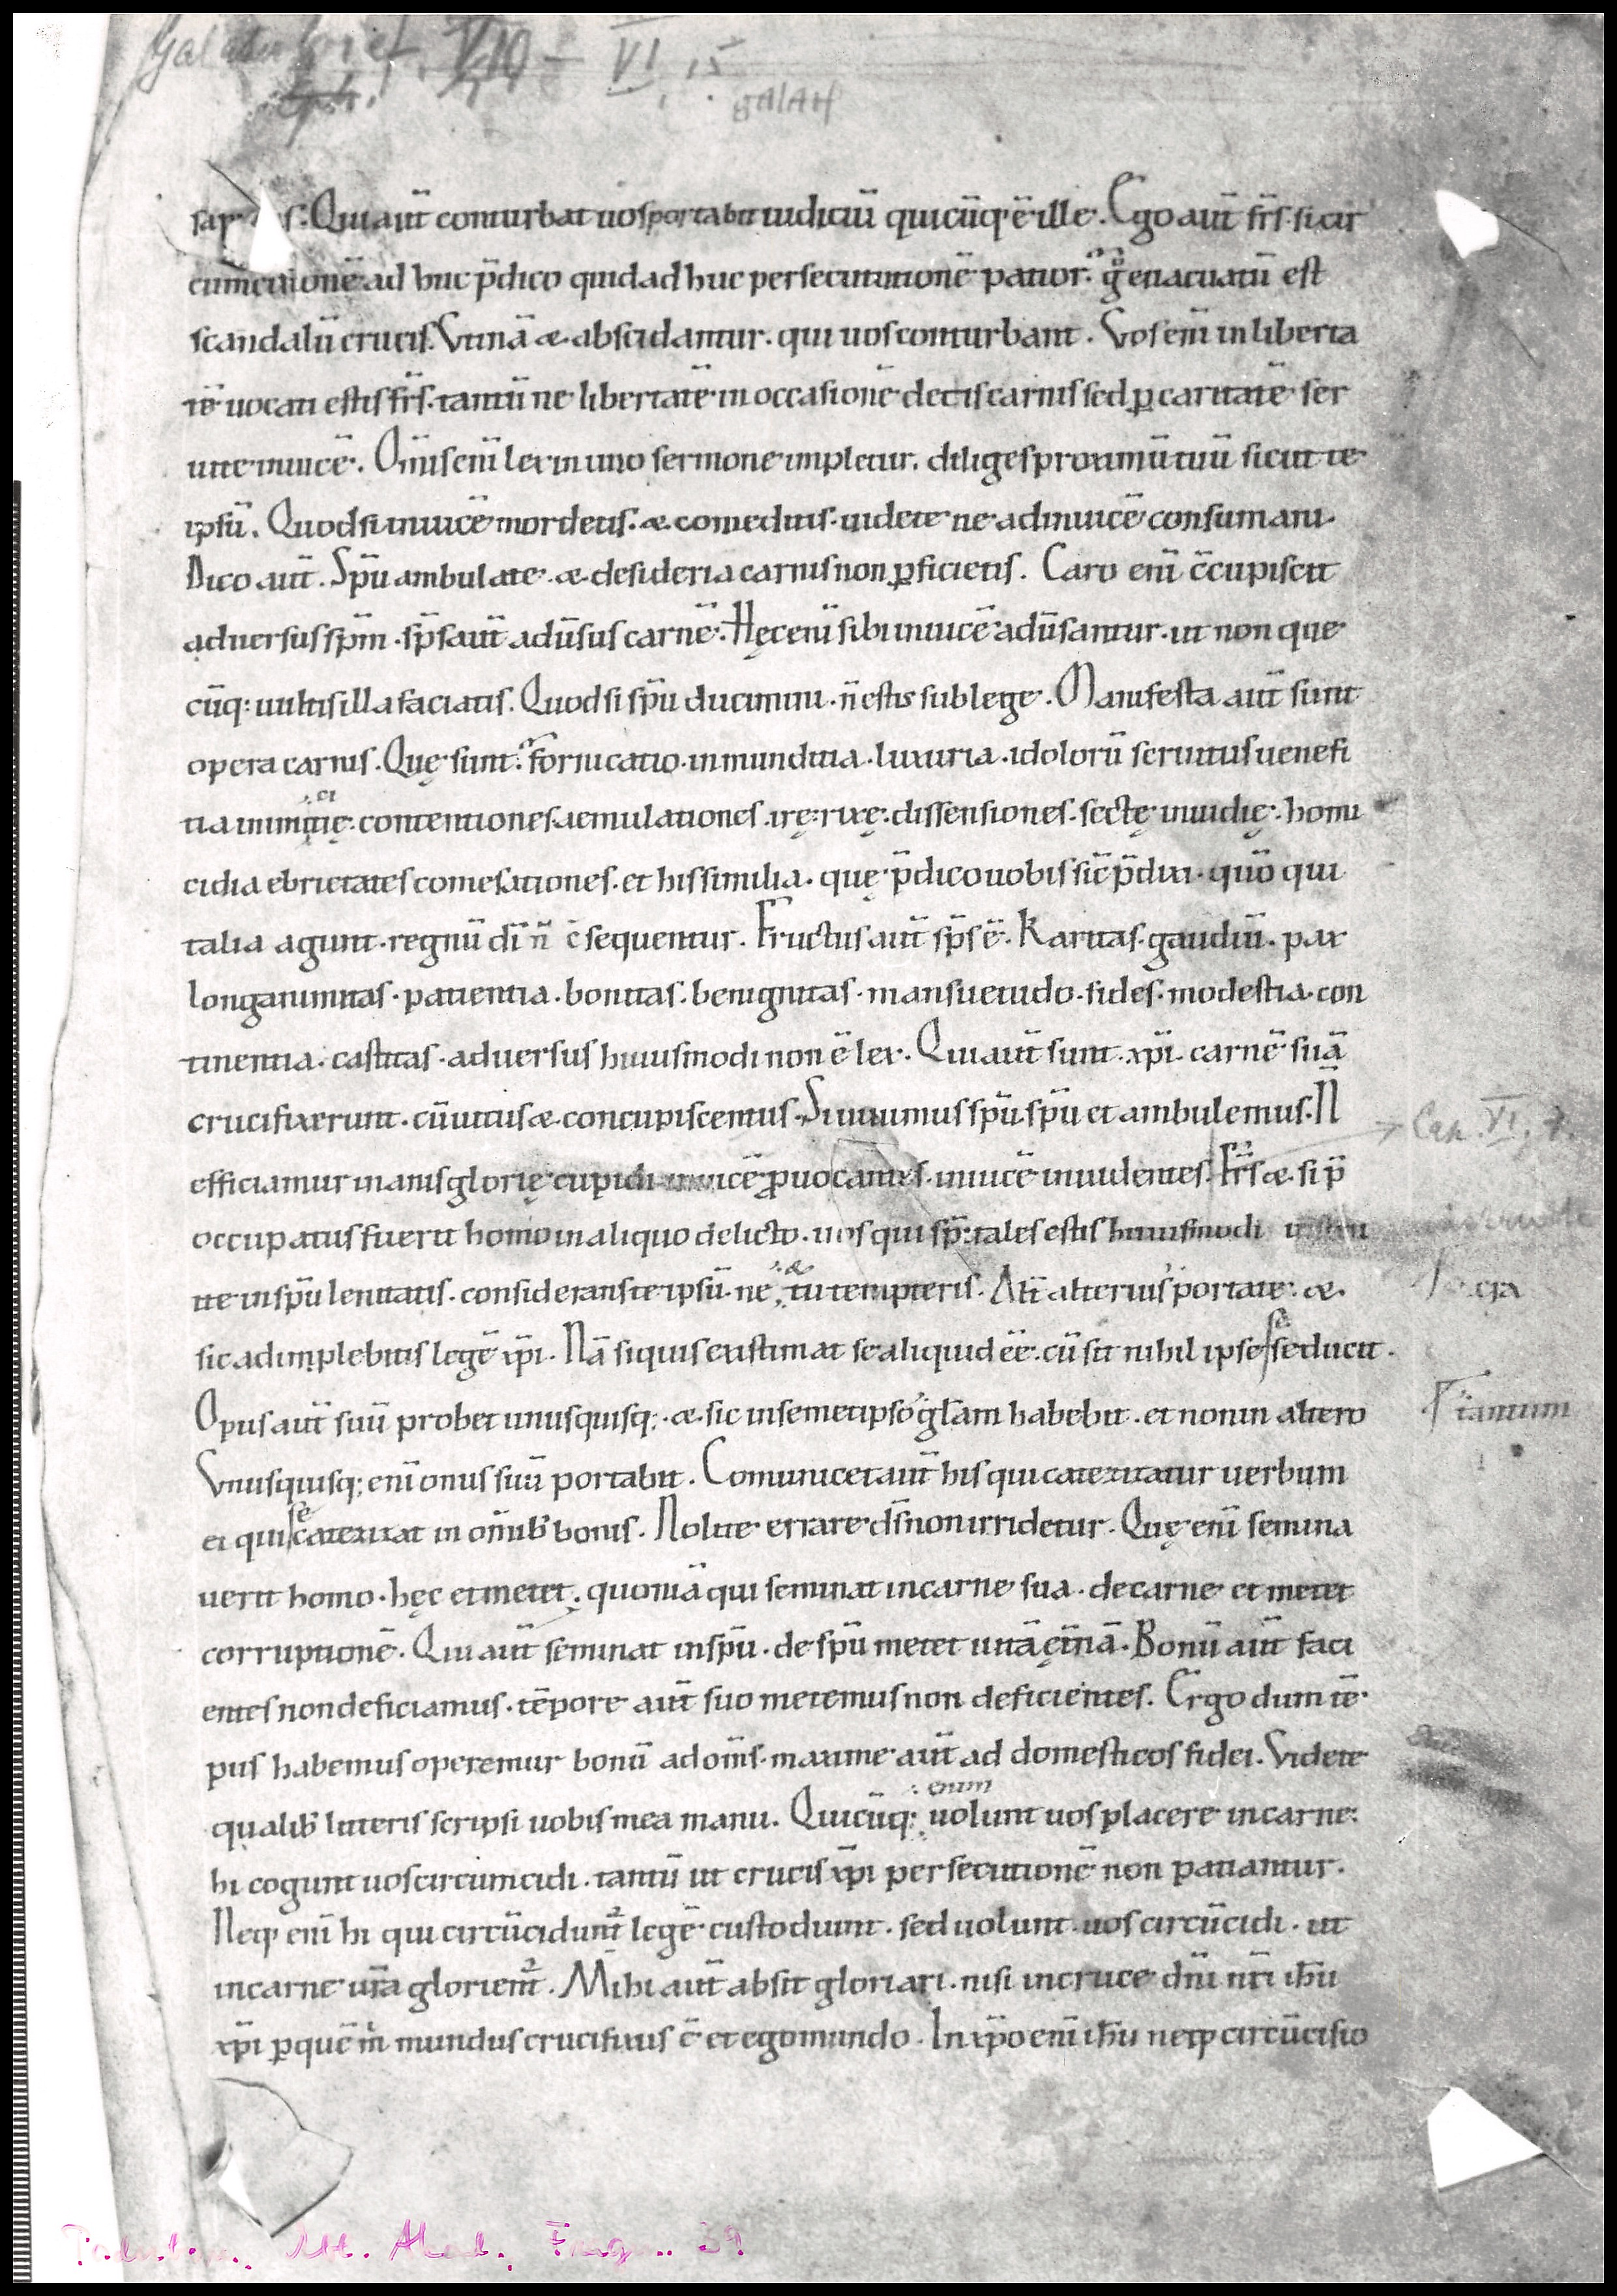 Galaterbrief V,10 – VI,15
galat
sap s. Qui aut̄ conturbat uos portabit iudiciū quicūq; ē ille. Ego aut̄ fr̄s si cir
cumcisionē ad huc p̄dico quid ad huc persecutionē patior. g̊ euacuatū est
scandalū crucis. Vtinā & abscidantur. qui uos conturbant. Vos enī in liberta
tē uocati estis fr̄s. tantū ne libertatē in occasionē detis carnis sed ꝑ caritatē ser
uite inuicē. Om̄is enī lex in uno sermone impletur. diliges proximū tuū sicut te
ipsū. Quod si inuicē mordetis. & comeditis. uidete ne ad inuicē consumani.
Dico aut̄. Sp̄u ambulate & desideria carnis non ꝑficietis. Caro enī c̄cupiscit
aduersus sp̄m. sp̄s aut̄ adūsus carnē. Hęc enī sibi inuicē adūsantur. ut non que
cūq: uultis illa faciatis. Quod si sp̄u ducimini. n̄ estis sub lege. Manifesta aut̄ sunt
opera carnis. Quę sunt. fornicatio. inmunditia. luxuria. idolorū seruitus uenefi
tia inimitię. contentiones aemulationes. irę. rixę. dissensiones. sectę inuidię. homi
cidia ebrietates comesationes. et his similia. quę p̄dico uobis sic̄ p̄dixi. quō qui
talia agunt. regnū dī n̄ c̄sequentur. Fructus aut̄ sp̄s ē. Karitas. gaudiū. pax
longanimitas. patientia. bonitas. benignitas. mansuetudo. fides. modestia. con
tinentia. castitas. aduersus huiusmodi non ē lex. Qui aut̄ sunt xp̄i. carnē suā
crucifixerunt. cū uitiis & concupiscentiis. Si uiuimus sp̄u. sp̄u et ambulemus. N̄
efficiamur inanis glorię cupidi inuicē ꝓuocantes. inuicē inuidentes. Fr̄s & si p̄
Cap. VI, 1.
occupatus fuerit homo in aliquo delicto. uos qui sp̄tales estis huiusmodi instru
ite in sp̄u lenitatis. considerans te ipsū. ne & tu tempteris. Alt̄ alterius portate. &
sic adimplebitis legē xp̄i. Nā si quis existimat se aliquid ēē. cū sit nihil ipse se seducit.
Opus aut̄ suū probet unusquisq;. & sic in semetipso gl̄am habebit. et non in altero
tantum
Vnusquisq; enī onus suū portabit. Comunicet aut̄ his qui catezizatur uerbum
ei qui se catezizat in om̄ib; bonis. Nolite errare d̄s non irridetur. Quę enī semina
uerit homo. hęc et metet. quoniā qui seminat in carne sua. de carne et metet
corruptionē. Qui aut̄ seminat in sp̄u. de sp̄u metet uitā ęt̄nā. Bonū aut̄ faci
entes non deficiamus. tēpore aut̄ suo metemus non deficientes. Ergo dum tē
pus habemus operemur bonū ad om̄s. maxime aut̄ ad domesticos fidei. Videte
qualib; litteris scripsi uobis mea manu. Quicūq; enim uolunt uos placere in carne:
hi cogunt uos circumcidi. tantū ut crucis xp̄i persecutionē non patiantur.
Neq; enī hi qui circūcidunt᷑ legē custodiunt. sed uolunt uos circūcidi. ut
in carne ur̄a glorient᷑. Mihi aut̄ absit gloriari. nisi in cruce dn̄i nr̄i ih̄u
xp̄i ꝑ quē m̄ mundus crucifixus ē et ego mundo. In xp̄o enī ih̄u neq; circūcisio